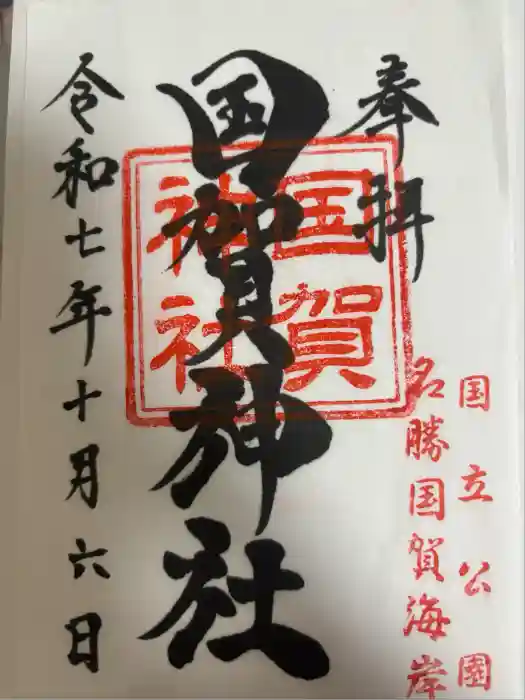 奉拝
国立公園
名勝国賀海岸
国賀神社
国賀
神社
令和七年十月六日